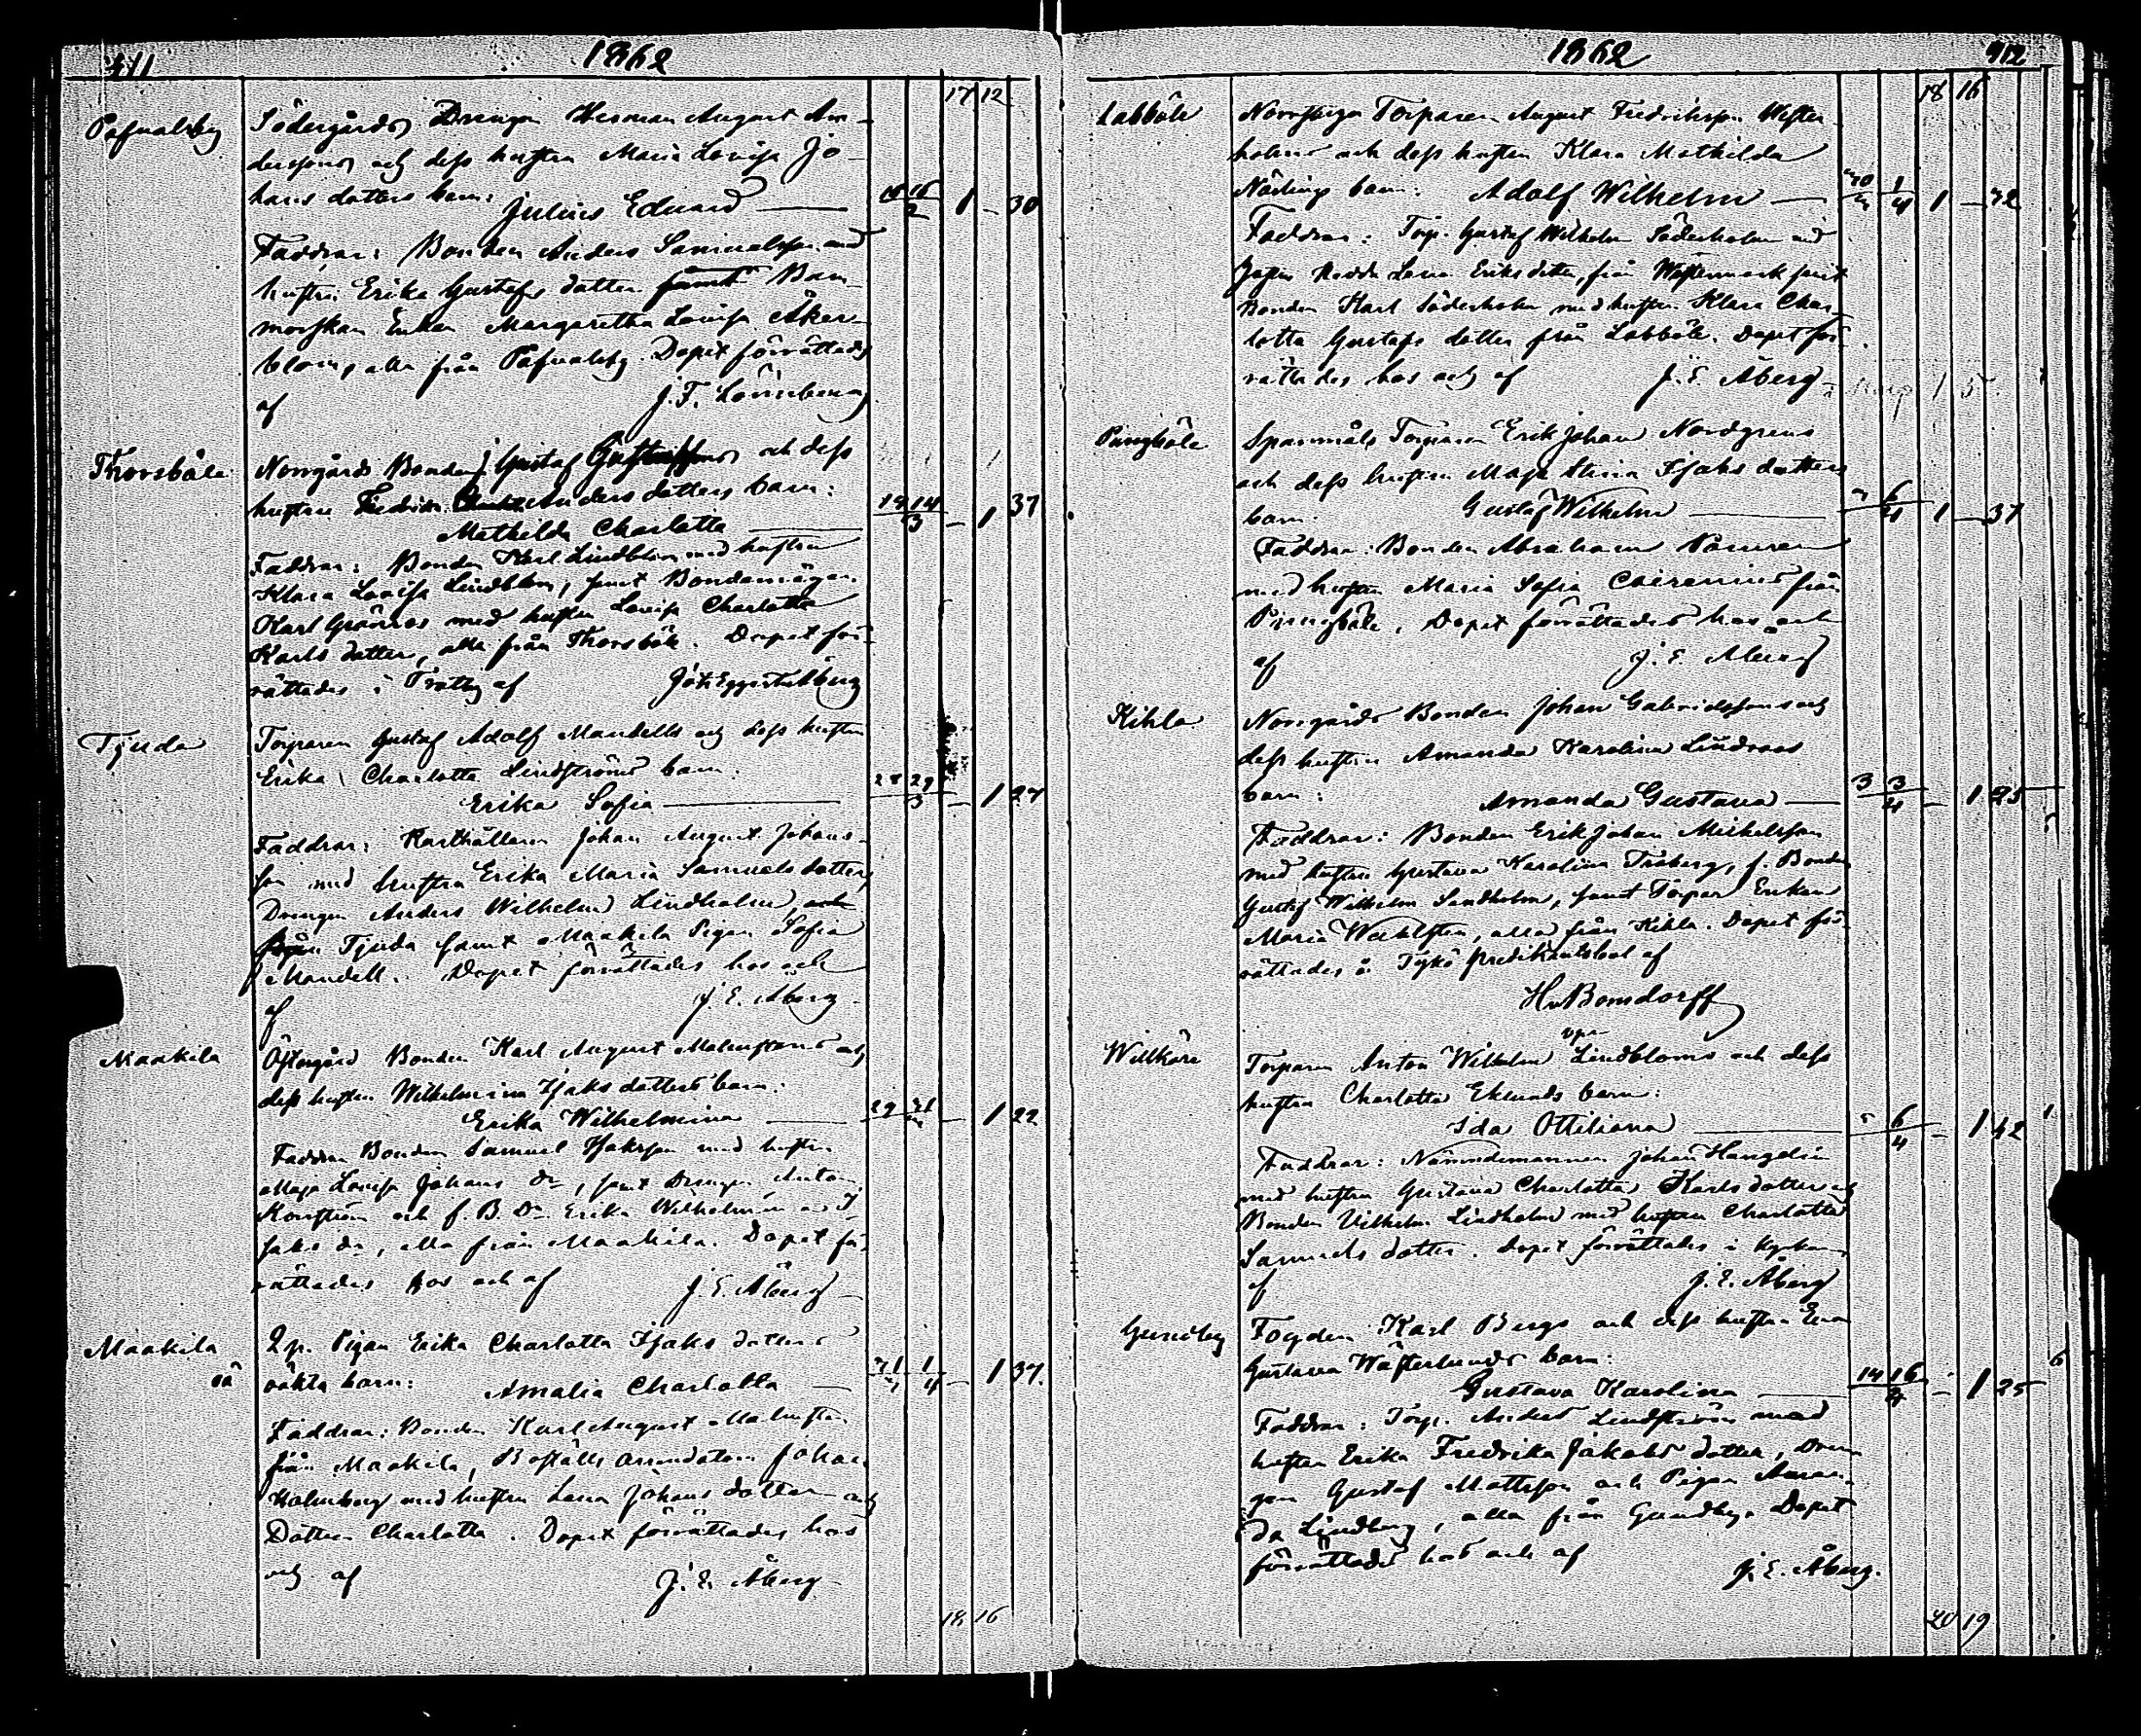 411 1862
17 12
Pafvalsby Södergårds Drengen Herman August An-
derssons och dess hustru Maria Lovisa Jo-
hans dotters barn:
Julius Eduard — 16/2 1 — 30
Faddrar: Bonden Anders Samuelsson med
hustru Erika Gustafs dotter samt Barn-
morskan Enkan Margaretha Lovisa Åker-
blom, alla från Pafvalsby. Dopet förrättades
af J. F. Lönnberg
Thorsböle Norrgårds Bonden Gustaf och dess
hustru Anders dotters barn:
Mathilda Charlotta — 14/3 — 1 37
Faddrar: Bonden Karl Lindblom med hustru
Klara Lovisa Lindblom, samt Bondemågen
Karl Grönroos med hustru Lovisa Charlotta
Karls dotter, alla från Thorsböle. Dopet för-
rättades i af Joh. Eggert Åberg
Tjuda Torparen Gustaf Adolf Mandells och dess hustru
Erika Charlotta Lindströms barn.
Erika Sofia — 28 29/3 — 1 27
Faddrar: Karlhållaren Johan August Johans-
son med hustru Erika Maria Samuels dotter,
Drengen Anders Wilhelm Lindholm,
från Tjuda samt Maakila Pigan Sofia
Mandell. Dopet förrättades hos och
af J. E. Åberg
Maakila Östergård Bonden Karl August Malmstens och
dess hustru Wilhelmina Isaks dotters barn:
Erika Wilhelmina — 29 31 — 1 22
Faddrar Bonden Samuel Isaksson med hustru
Maja Lovisa Johans Dr, samt Drengen Anton
och f. B. Dr. Erika Wilhelmina I-
saks dr, alla från Maakila. Dopet för-
rättades hos och af J. E. Åberg
Maakila Pigan Erika Charlotta Isaks dotters
oä oäkta barn: Amalia Charlotta — 31 1/4 — 1 37.
Faddrar: Bonden Karl August Malmsten
från Maakila, Boställs arrendatorn Johan
Holmberg med hustru Lena Johans dotter och
Dottern Charlotta. Dopet förrättades hos
och af J. E. Åberg
18 16
1862 412
18 16
Labböle Torparen August Fredriksson Wester-
holms och dess hustru Klara Mathilda
barn: Adolf Wilhelm — 30 1/4 1 — 42
Faddrar: Torp. Gustaf Wilhelm Söderholm med
Hedda Lena Eriks dotter, från samt
Bonden Karl Söderholm med hustru Klara Char-
lotta Gustafs dotter från Labböle. Dopet för-
rättades hos och af J. E. Åberg
Pungböle Torparen Erik Johan Nordgrens
och dess hustru Maja Stina Isaks dotters
barn: Gustaf Wilhelm — 6/4 1 — 37
Faddrar: Bonden Abraham
med hustru Maria Sofia från
Pungböle, Dopet förrättades hos och
af J. E. Åberg
Kihla Norrgårds Bonden Johan Gabrielssons och
dess hustru Amanda Karolina Lindroos
barn: Amanda Gustava — 3 3/4 — 1 25
Faddrar: Bonden Erik Johan Mickelsson
med hustru Gustava Karolina f. Bonden
Gustaf Wilhelm Sandholm, samt Torpar Enkan
Maria Wahlsten, alla från Kihla. Dopet för-
rättades å Tykö predikantsbol af
H. v. Bonsdorff
vpr
Willkäre Torparen Anton Wilhelm Lindbloms och dess
hustru Charlotta Eklunds barn:
Ida Ottiliana — 6/4 — 1 42
Faddrar: Nämndemannen Johan Hangelin
med hustru Gustava Charlotta Karls dotter och
Bonden Vilhelm Lindholm med hustru Charlotta
Samuels dotter. Dopet förrättades i kyrkan
af J. E. Åberg
Gundby Fogden Karl Bergs och dess hustru Eva
Gustava Wästerlunds barn:
Gustava Karolina — 14 16/4 — 1 25
Faddrar: Torp. Anders Lindström med
hustru Erika Fredrika Jakobs dotter, Dren-
gen Gustaf Mattsson och Pigan Aman-
da Lindberg, alla från Gundby. Dopet
förrättades hos och af J. E. Åberg.
20 19